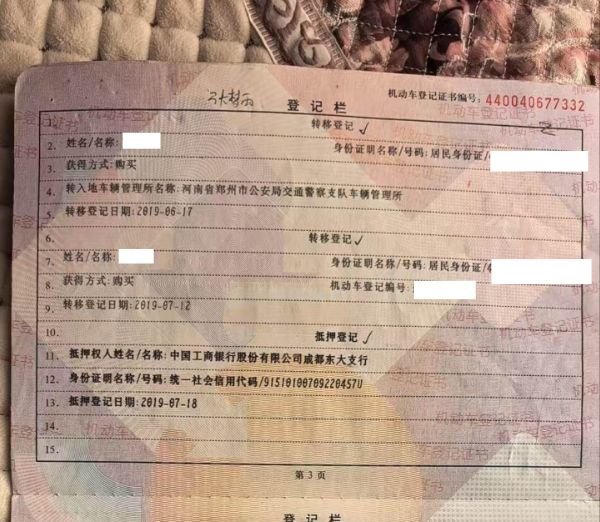 登记栏
机动车登记证书编号：440040677332
1. 转移登记 ✓
2. 姓名/名称： 身份证明名称/号码：居民身份证/
3. 获得方式：购买
4. 转入地车辆管理所名称：河南省郑州市公安局交通警察支队车辆管理所
5. 转移登记日期：2019-06-17
6. 转移登记 ✓
7. 姓名/名称： 身份证明名称/号码：居民身份证/
8. 获得方式：购买 机动车登记编号：
9. 转移登记日期：2019-07-12
10. 抵押登记 ✓
11. 抵押权人姓名/名称：中国工商银行股份有限公司成都东大支行
12. 身份证明名称/号码：统一社会信用代码/91510100709220457U
13. 抵押登记日期：2019-07-18
14.
15.
第 3 页
登记栏